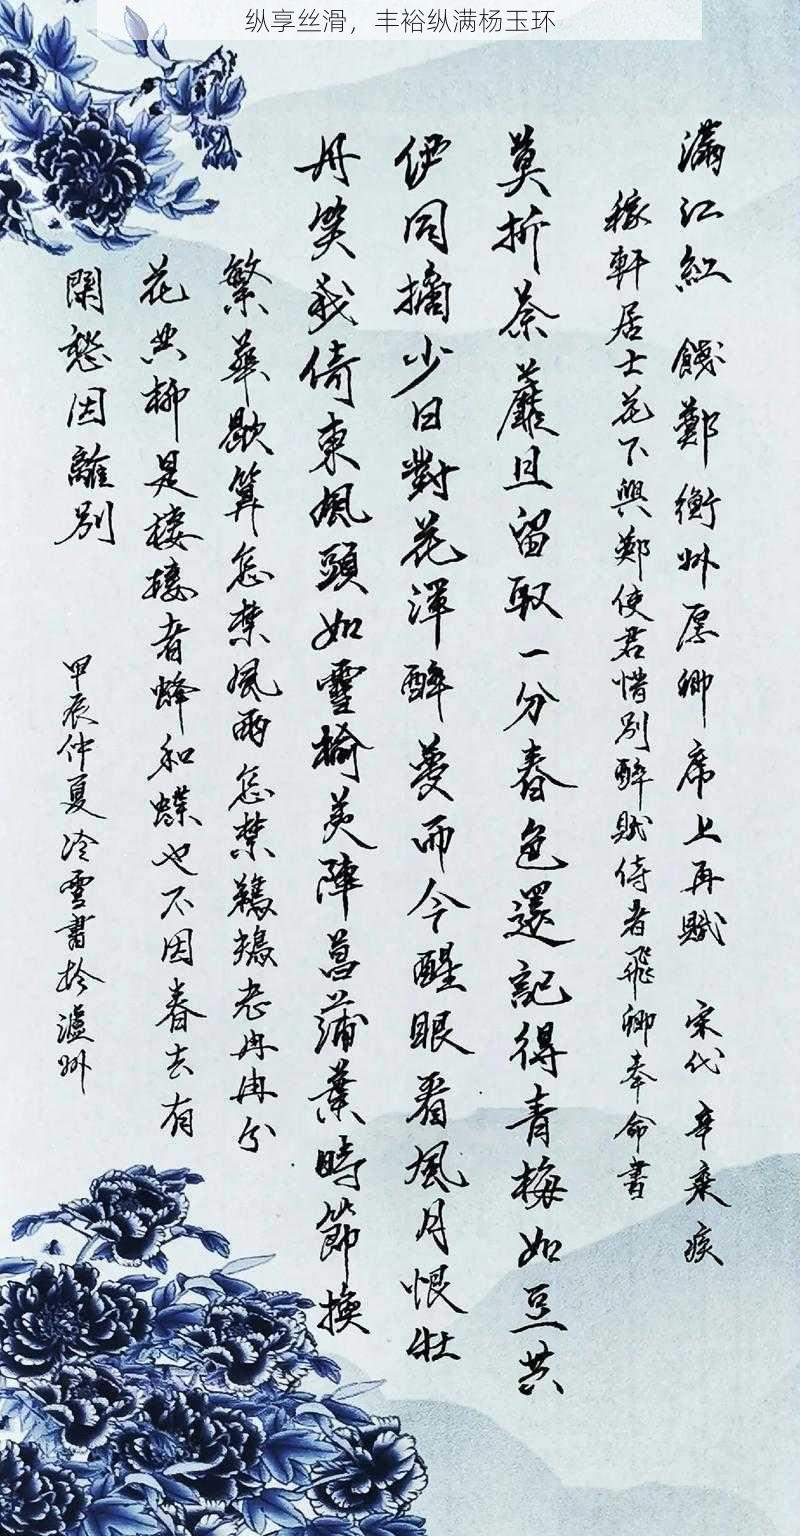 纵享丝滑，丰裕纵满杨玉环
滿江紅 餞鄭衡州厚卿席上再賦 宋代 辛棄疾
稼軒居士花下與鄭使君惜別醉賦侍者飛卿奉命書
莫折荼蘼且留取一分春色還記得青梅如豆共
伊同摘少日對花渾醉夢而今醒眼看風月恨牡
丹笑我倚東風頭如雪榆莢陣菖蒲葉時節換
繁華歇算怎禁風雨怎禁鵜鴂老冉冉兮
花共柳是棲棲者蜂和蝶也不因春去有
閑愁因離別
甲辰仲夏冷雪書於瀘州